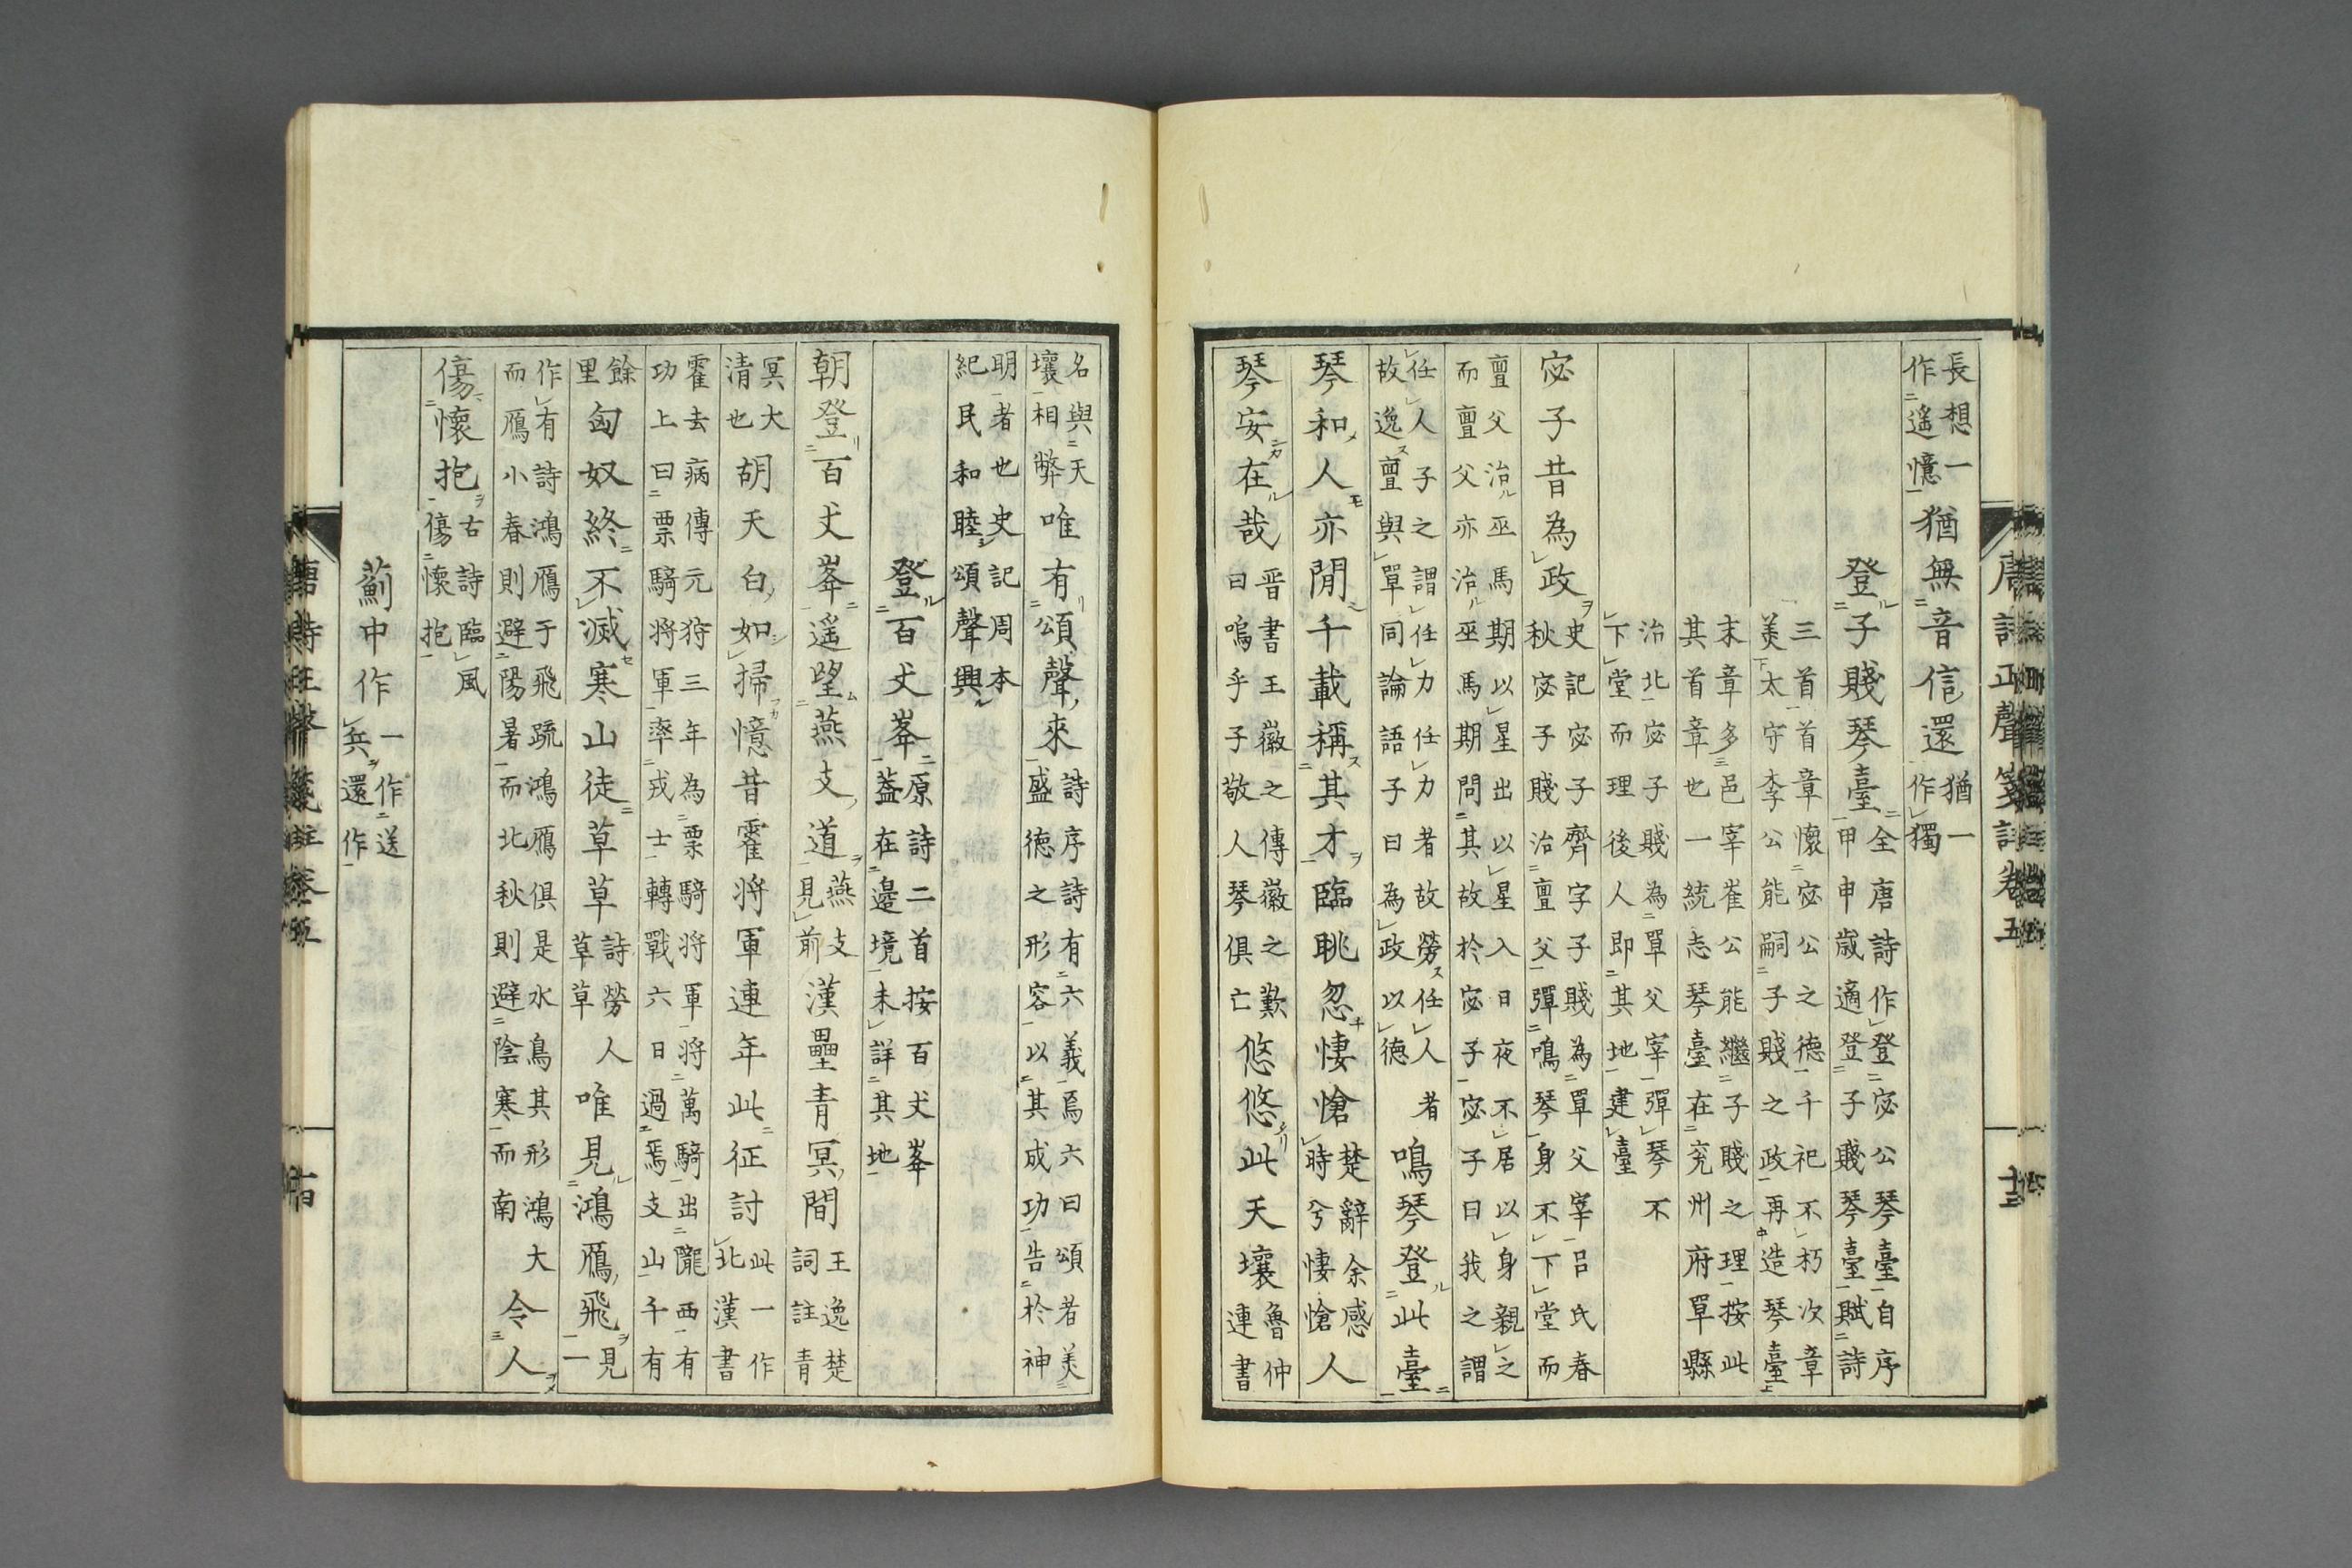 唐詩正聲箋註卷五
十三
長想一
作遥憶猶無音信還猶一
作獨
登子賤琴臺全唐詩作登宓公琴臺自序
甲申歳適登子賤琴臺賦詩
三首首章懷宓公之德千祀不朽次章
美太守李公能嗣子賤之政再造琴臺
末章多邑宰崔公能繼子賤之理按此
其首章也一統志琴臺在兖州府單縣
治北宓子賤為單父宰彈琴不
下堂而理後人即其地建臺
宓子昔為政史記宓子齊字子賤為單父宰吕氏春
秋宓子賤治亶父彈鳴琴身不下堂而
亶父治巫馬期以星出以星入日夜不居以身親之
而亶父亦治巫馬期問其故於宓子宓子曰我之謂
任人子之謂任力任力者故勞任人者
故逸亶與單同論語子曰為政以德鳴琴登此臺
琴和人亦閒千載稱其才臨眺忽悽愴楚辭余感
時兮悽愴人
琴安在哉晋書王徽之傳徽之歎
曰嗚乎子敬人琴俱亡悠悠此天壤魯仲
連書
名與天
壤相弊唯有頌聲來詩序詩有六義焉六曰頌者美
盛德之形容以其成功告於神
明者也史記周本
紀民和睦頌聲興
登百丈峯原詩二首按百丈峯
葢在邉境未詳其地
朝登百丈峯遥望燕支道燕支
見前漢壘青冥間王逸楚
詞註青
冥大
清也胡天白如掃憶昔霍將軍連年此征討此一作
北漢書
霍去病傳元狩三年為票騎將軍將萬騎出隴西有
功上曰票騎將軍率戎士轉戰六日過焉支山千有
餘
里匈奴終不滅寒山徒草草詩勞人
草草唯見鴻鴈飛見
一
作有詩鴻鴈于飛疏鴻鴈俱是水鳥其形鴻大
而鴈小春則避陽暑而北秋則避陰寒而南令人
傷懷抱古詩臨風
傷懷抱
薊中作一作送
兵還作